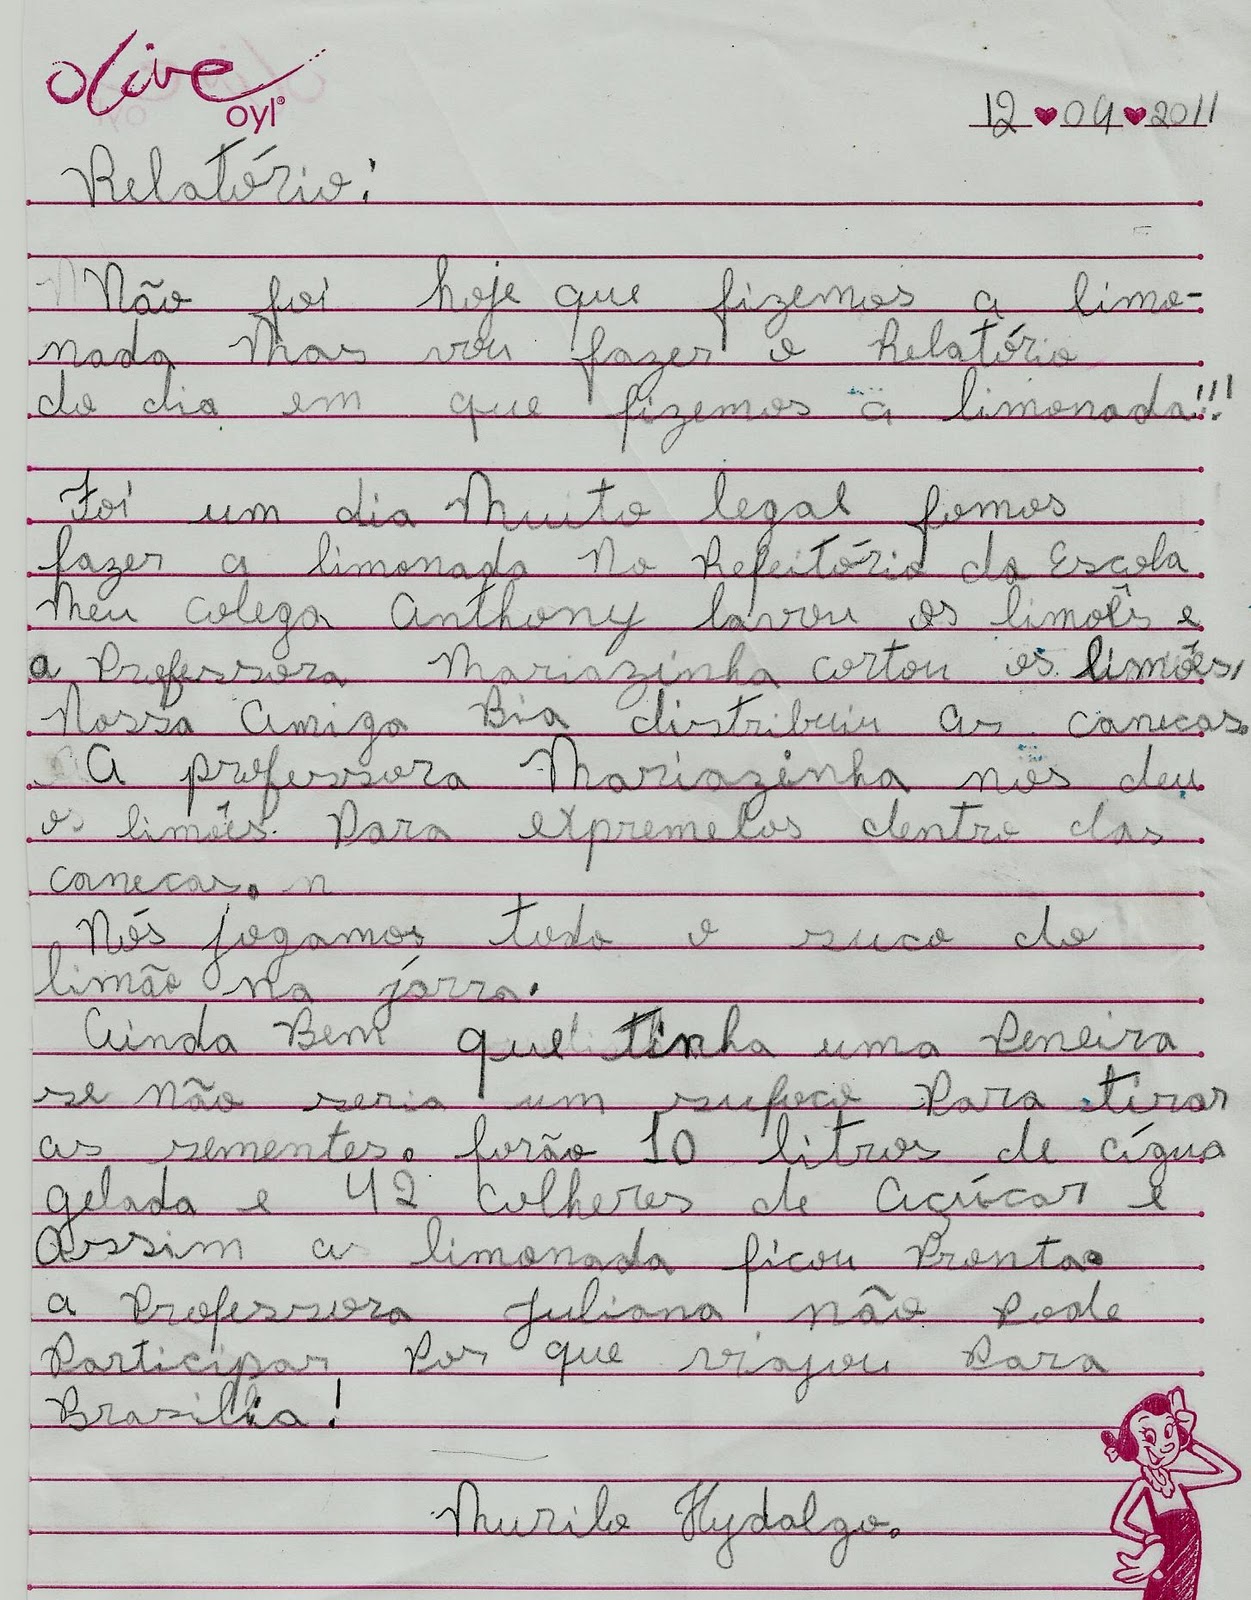 Olive
oyl®
12 04 2011
Relatório:
Não foi hoje que fizemos a limo-
nada Mas vou fazer o Relatório
do dia em que fizemos a limonada!!!
Foi um dia Muito legal fomos
fazer a limonada No Refeitório da Escola
Meu Colega Anthony lavou os limões e
a Professora Mariazinha cortou os limões,
Nossa Amiga Bia distribuiu as canecas.
A professora Mariazinha nos deu
os limões Para expremelos dentro das
canecas. n
Nós jogamos todo o suco do
limão na járra.
Ainda Bem que tinha uma Peneira
se não seria um sufoco Para tirar
as sementes. forão 10 litros de água
gelada e 42 Colheres de Açúcar e
Assim a limonada ficou Pronta.
a Professora Juliana não Pode
Participar Por que viajou Para
Brasilia!
Murilo Hydalgo.